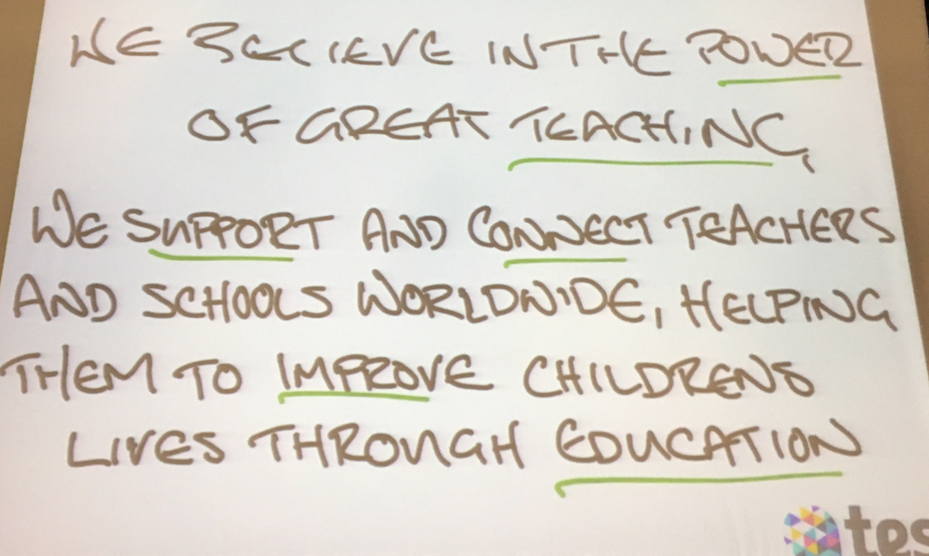 WE BELIEVE IN THE POWER
OF GREAT TEACHING,
WE SUPPORT AND CONNECT TEACHERS
AND SCHOOLS WORLDWIDE, HELPING
THEM TO IMPROVE CHILDRENS
LIVES THROUGH EDUCATION
tes